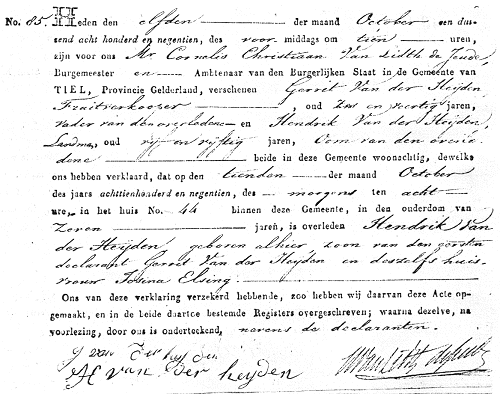 No. 85. Heden den elfden der maand October een dui-
zend acht honderd en negentien, des voor middags om tien uren,
zijn voor ons Mr. Cornelis Christiaan Van Lidth de Jeude,
Burgemeester en Ambtenaar van den Burgerlijken Staat in de Gemeente van
TIEL, Provincie Gelderland, verschenen Gerrit Van der Heyden
Fruitverkooper, oud zes en veertig jaren,
vader van den overledene en Hendrik Van der Heijden,
Landman, oud vijf en vijftig jaren, Oom van den overle-
dene beide in deze Gemeente woonachtig, dewelke
ons hebben verklaard, dat op den tienden der maand October
des jaars achttienhonderd en negentien, des morgens ten acht
ure, in het huis No. 44 binnen deze Gemeente, in den ouderdom van
Zeven jaren, is overleden Hendrik Van
der Heyden, geboren alhier, zoon van den eersten
declarant Gerrit Van der Heyden en deszelfs huis-
vrouw Elsing.
Ons van deze verklaring verzekerd hebbende, zoo hebben wij daarvan deze Acte op-
gemaakt, en in de beide daartoe bestemde Registers overgeschreven; waarna dezelve, na
voorlezing, door ons is onderteekend, nevens de declaranten.
G van der heyden
H van der heyden